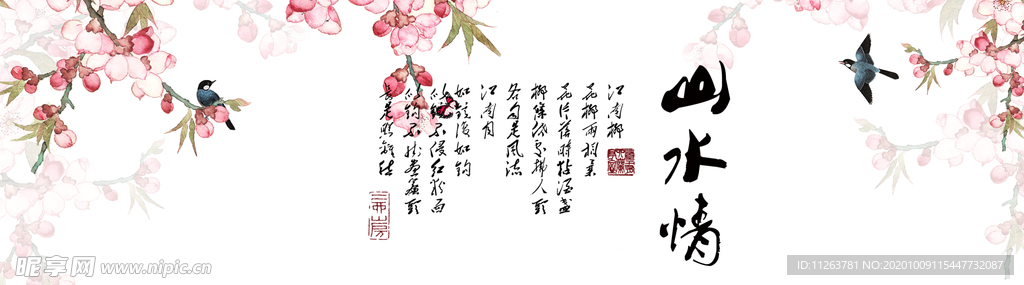 山水情
江南柳
花柳两相柔
花片落时黏酒盏
柳条低处拂人头
各自是风流
江南月
如镜复如钩
似镜不侵红粉面
似钩不挂画帘头
长是照离愁
昵享网 www.nipic.cn
ID:11263781 NO:20201009115447732087